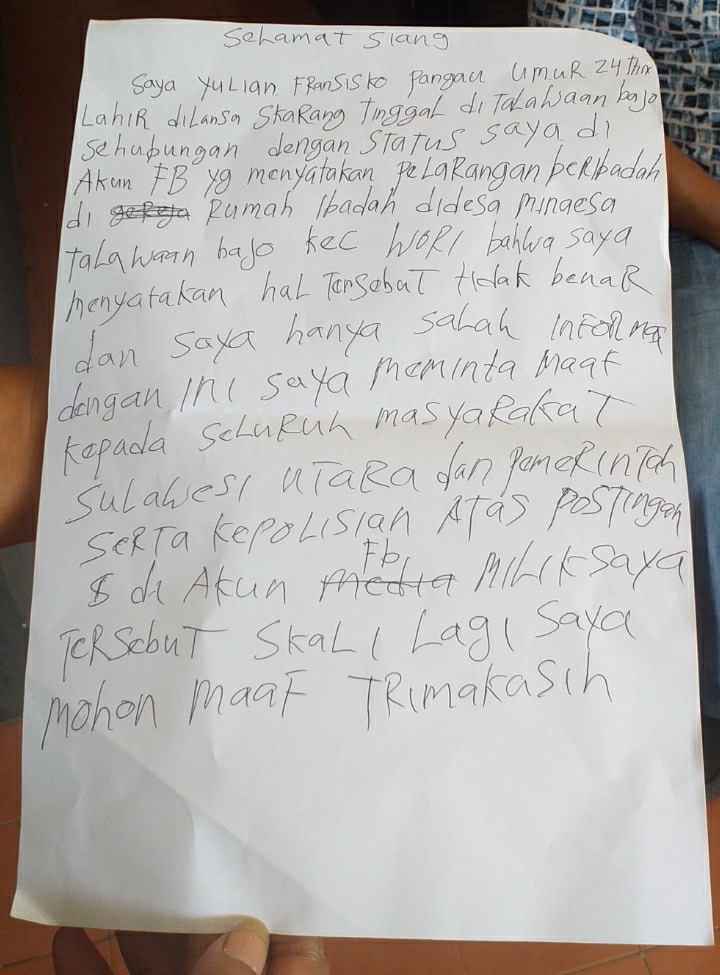 Selamat siang
Saya Yulian Fransisko Pangau Umur 24 thn
Lahir dilansa skarang tinggal di talawaan bajo
Sehubungan dengan status saya di
Akun FB yg menyatakan pelarangan beribadah
di gereja Rumah Ibadah didesa minaesa
talawaan bajo kec WORI bahwa saya
menyatakan hal Tersebut tidak benar
dan saya hanya salah informasi
dengan ini saya meminta maaf
kepada seluruh masyarakat
Sulawesi utara dan pemerintah
serta kepolisian Atas postingan
di Akun media Fb Milik saya
Tersebut skali lagi saya
Mohon maaf Trimakasih